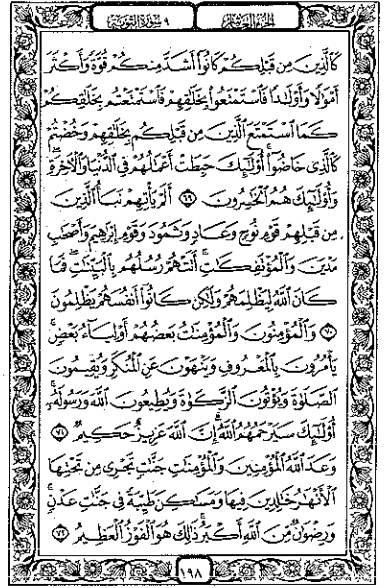 الجزء العاشر ٩ سورة التوبة
كَٱلَّذِينَ مِن قَبْلِكُمْ كَانُوٓا۟ أَشَدَّ مِنكُمْ قُوَّةً وَأَكْثَرَ
أَمْوَٰلًا وَأَوْلَٰدًا فَٱسْتَمْتَعُوا۟ بِخَلَٰقِهِمْ فَٱسْتَمْتَعْتُم بِخَلَٰقِكُمْ
كَمَا ٱسْتَمْتَعَ ٱلَّذِينَ مِن قَبْلِكُم بِخَلَٰقِهِمْ وَخُضْتُمْ
كَٱلَّذِى خَاضُوٓا۟ ۚ أُو۟لَٰٓئِكَ حَبِطَتْ أَعْمَٰلُهُمْ فِى ٱلدُّنْيَا وَٱلْءَاخِرَةِ ۖ
وَأُو۟لَٰٓئِكَ هُمُ ٱلْخَٰسِرُونَ ٦٩ أَلَمْ يَأْتِهِمْ نَبَأُ ٱلَّذِينَ
مِن قَبْلِهِمْ قَوْمِ نُوحٍ وَعَادٍ وَثَمُودَ وَقَوْمِ إِبْرَٰهِيمَ وَأَصْحَٰبِ
مَدْيَنَ وَٱلْمُؤْتَفِكَٰتِ ۚ أَتَتْهُمْ رُسُلُهُم بِٱلْبَيِّنَٰتِ ۖ فَمَا
كَانَ ٱللَّهُ لِيَظْلِمَهُمْ وَلَٰكِن كَانُوٓا۟ أَنفُسَهُمْ يَظْلِمُونَ
٧٠ وَٱلْمُؤْمِنُونَ وَٱلْمُؤْمِنَٰتُ بَعْضُهُمْ أَوْلِيَآءُ بَعْضٍ ۚ
يَأْمُرُونَ بِٱلْمَعْرُوفِ وَيَنْهَوْنَ عَنِ ٱلْمُنكَرِ وَيُقِيمُونَ
ٱلصَّلَوٰةَ وَيُؤْتُونَ ٱلزَّكَوٰةَ وَيُطِيعُونَ ٱللَّهَ وَرَسُولَهُۥٓ ۚ
أُو۟لَٰٓئِكَ سَيَرْحَمُهُمُ ٱللَّهُ ۗ إِنَّ ٱللَّهَ عَزِيزٌ حَكِيمٌ ٧١
وَعَدَ ٱللَّهُ ٱلْمُؤْمِنِينَ وَٱلْمُؤْمِنَٰتِ جَنَّٰتٍ تَجْرِى مِن تَحْتِهَا
ٱلْأَنْهَٰرُ خَٰلِدِينَ فِيهَا وَمَسَٰكِنَ طَيِّبَةً فِى جَنَّٰتِ عَدْنٍ ۚ
وَرِضْوَٰنٌ مِّنَ ٱللَّهِ أَكْبَرُ ۚ ذَٰلِكَ هُوَ ٱلْفَوْزُ ٱلْعَظِيمُ ٧٢
١٩٨